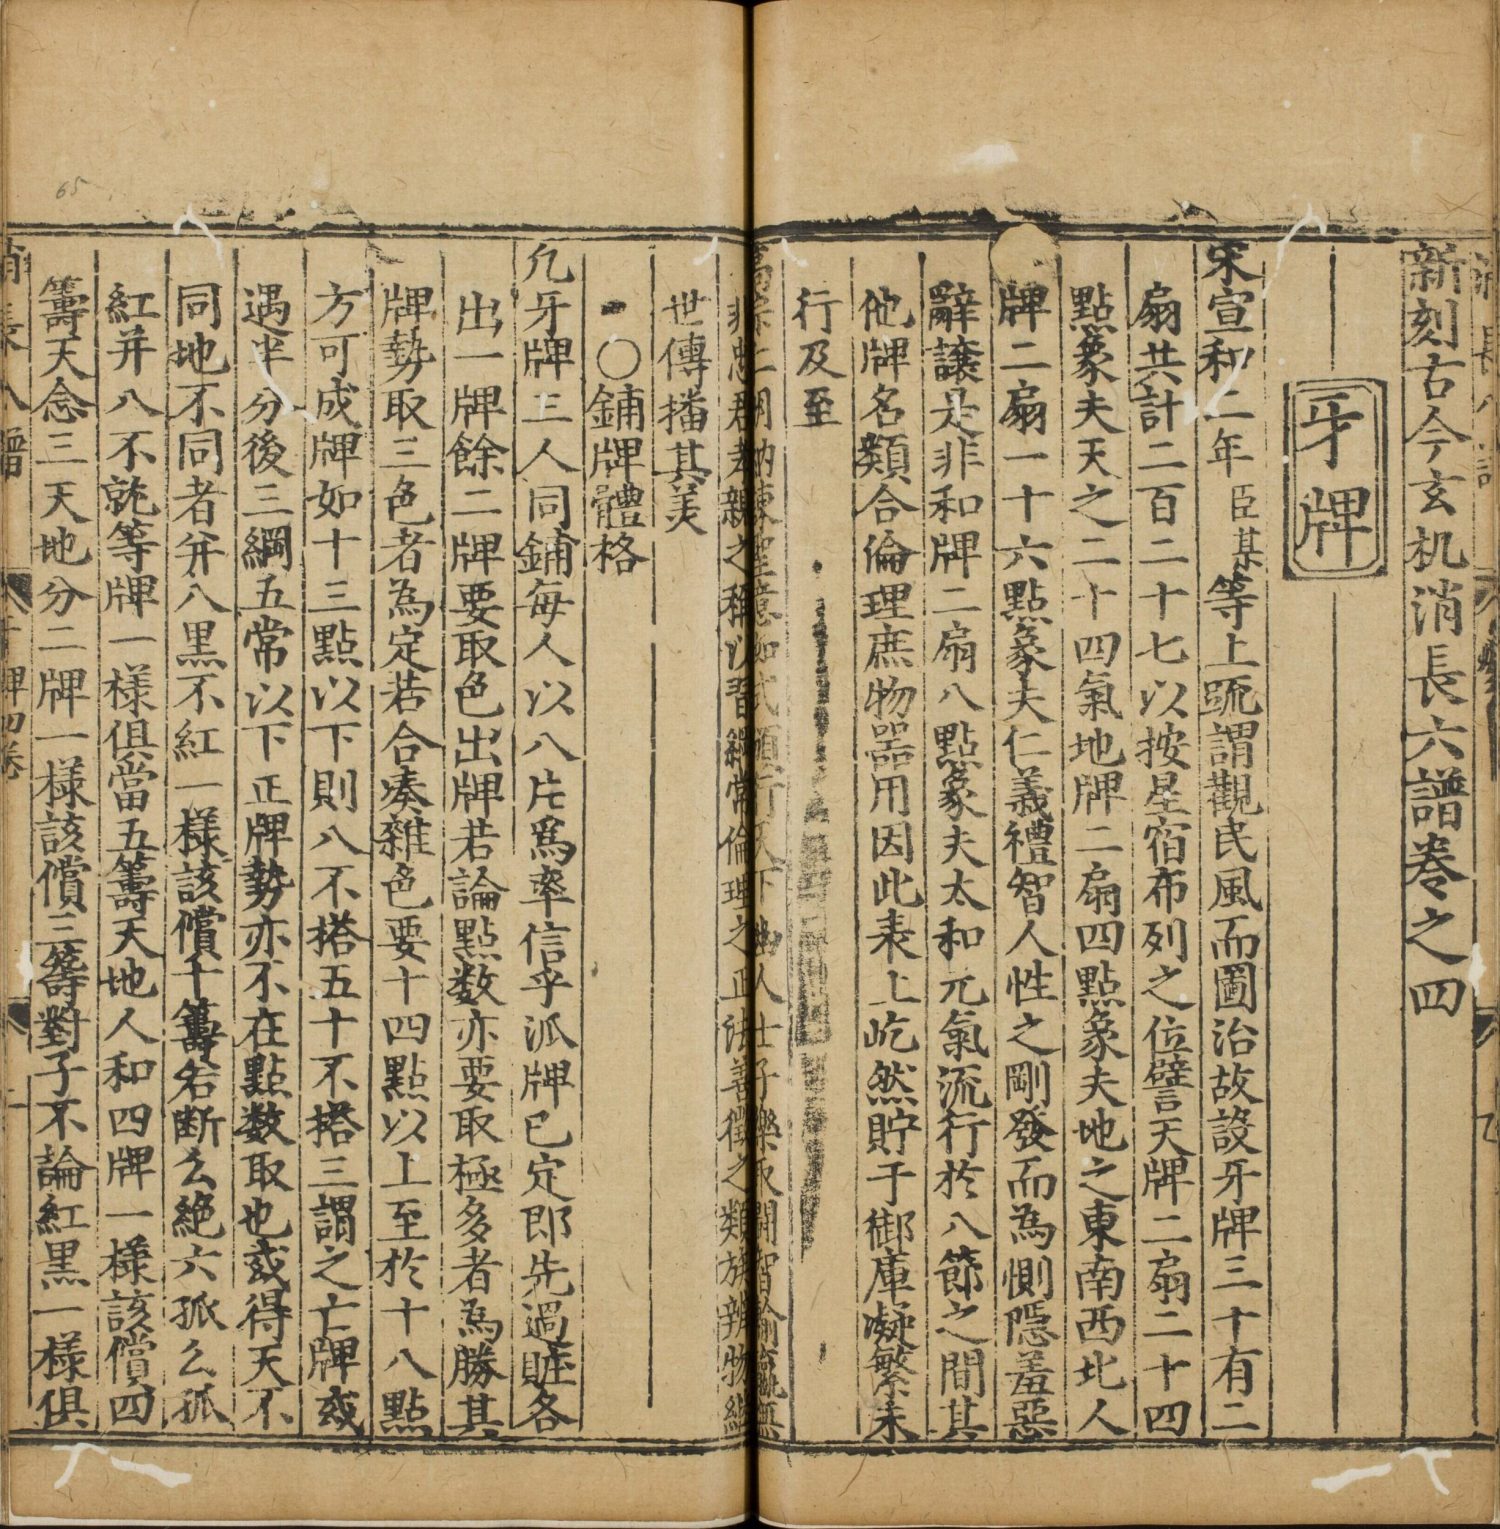 新刻古今玄机消長六譜卷之四
牙牌
宋宣和二年臣某等上䟽謂觀民風而圖治故設牙牌三十有二
扇共計二百二十七以按星宿布列之位譬天牌二扇二十四
點象夫天之二十四氣地牌二扇四點象夫地之東南西北人
牌二扇一十六點象夫仁義禮智人性之剛發而為惻隠羞惡
辭讓是非和牌二扇八點象夫太和元氣流行於八節之間其
他牌名類合倫理庶物噐用因此表上屹然貯于御庫凝繁未
行及至
高宗
非忠君孝親之稱以習綱常倫理之正法善徵之類族辨物繼
世傳播其美
〇鋪牌體格
凢牙牌三人同鋪每人以八片爲率信乎派牌已定即先過賍各
出一牌餘二牌要取色出牌若論點数亦要取極多者為勝其
牌勢取三色者為定若合凑雜色要十四點以上至於十八點
方可成牌如十三點以下則八不搭五十不搭三謂之亡牌或
遇半分後三綱五常以下正牌勢亦不在點数取也或得天不
同地不同者并八黒不紅一様該償千籌名断么絶六孤么孤
紅并八不就等牌一様俱當五籌天地人和四牌一様該償四
籌天念三天地分二牌一様該償三籌對子不論紅黒一様俱